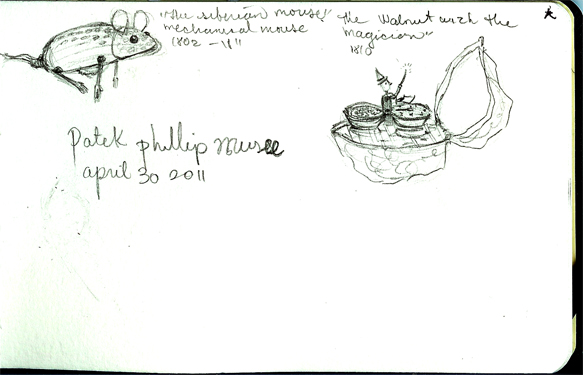 "the siberian mouse"
mechanical mouse
(1802 - 
the Walnut with the
magician"
1810
Patek phillip Musee
april 30 2011